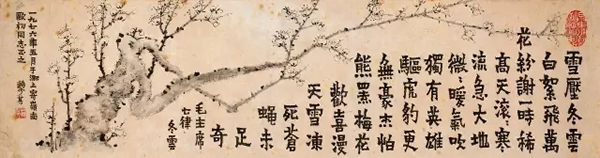 雪壓冬雲
白絮飛萬
花紛謝一時稀
高天滾〻寒
流急大地
微〻暖氣吹
獨有英雄
驅虎豹更
無豪杰怕
熊羆梅花
歡喜漫
天雪凍
死蒼
蠅未
足
奇
毛主席
七律
冬雲
一九七六年五月于湖上寄嶺南
歐初同志正之